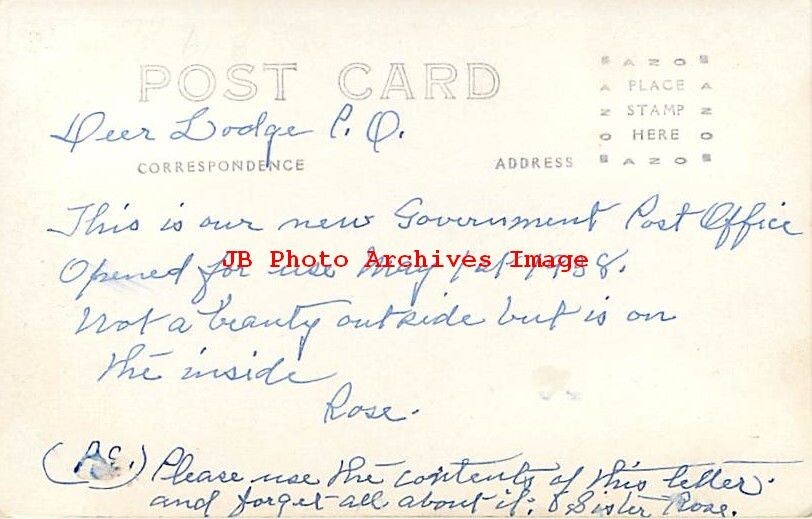 POST CARD
AZO
A PLACE A
Z STAMP Z
O HERE O
AZO
Deer Lodge P.O.
CORRESPONDENCE ADDRESS
This is our new Government Post Office
JB Photo Archives Image
Opened for use May 1st 1938.
Not a beauty outside but is on
the inside
Rose.
Please use the contents of this letter.
and forget all about it. Sister Rose.